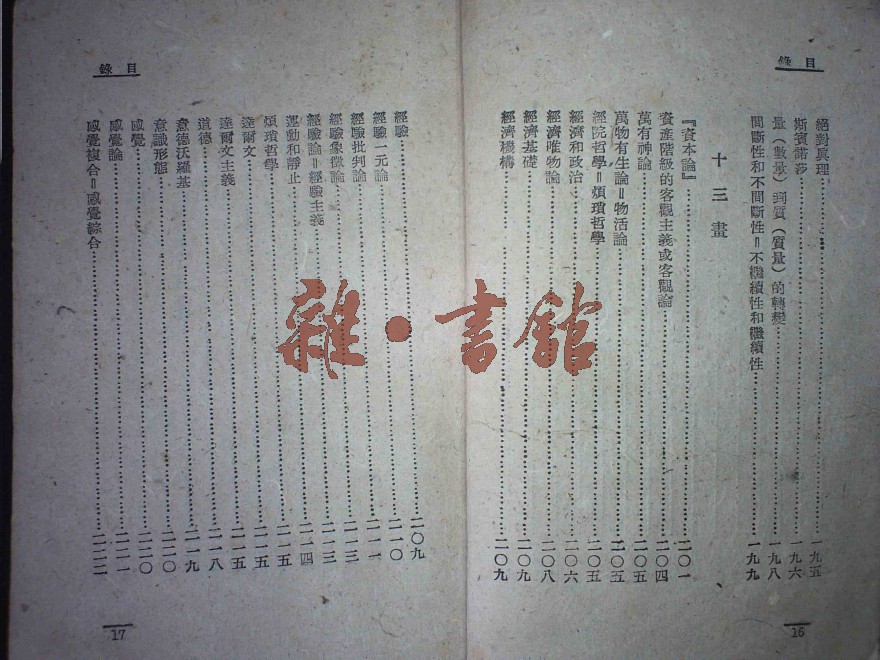 目錄
絕對眞理……一九五
斯賓諾莎……一九六
量（數量）到質（質量）的轉變……一九八
間斷性和不間斷性＝不繼續性和繼續性……一九九
十三畫
『資本論』……二〇一
資產階級的客觀主義或客觀論……二〇四
萬有神論……二〇五
萬物有生論＝物活論……二〇五
經院哲學＝煩瑣哲學……二〇五
經濟和政治……二〇六
經濟唯物論……二〇八
經濟基礎……二〇九
經濟機構……二〇九
16
目錄
經驗……二〇九
經驗一元論……二一〇
經驗批判論……二一一
經驗象徵論……二一三
經驗論＝經驗主義……二一三
運動和靜止……二一四
煩瑣哲學……二一五
達爾文……二一五
達爾文主義……二一五
道德……二一八
意德沃羅基……二一九
意識形態……二二〇
感覺……二二〇
感覺論……二二一
感覺複合＝感覺綜合……二二二
17
雜·書館